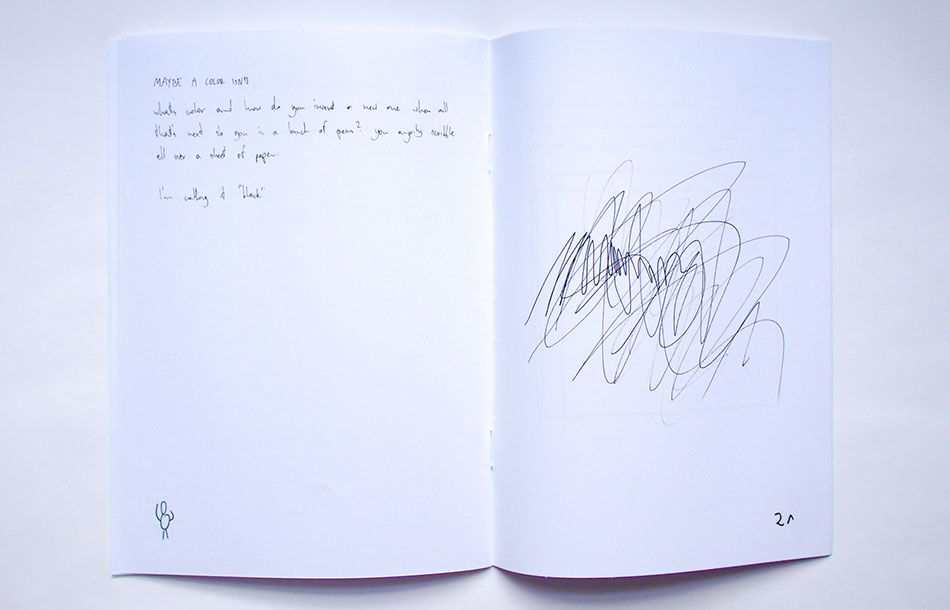 MAYBE A COLOR ISN'T
what's color and how do you invent a new one when all
that's next to you is a bunch of pens? you angrily scribble
all over a sheet of paper.
I'm calling it "black"
21